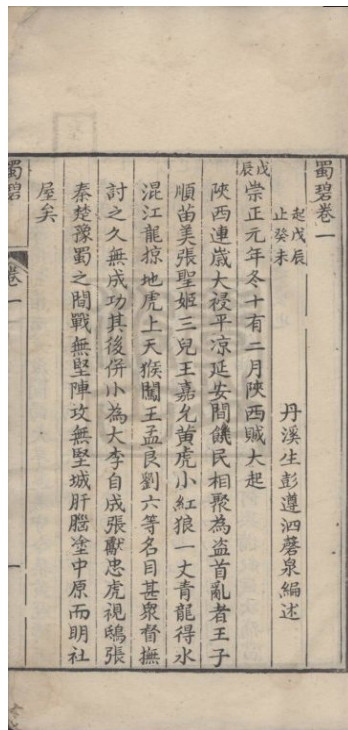 蜀碧卷一
起戊辰
止癸未
丹溪生彭遵泗磬泉編述
戊辰崇正元年冬十有二月陜西賊大起
陜西連歲大祲平凉延安間饑民相聚為盗首亂者王子
順苗美張聖姬三兒王嘉允黄虎小紅狼一丈青龍得水
混江龍掠地虎上天猴闖王孟良劉六等名目甚衆督撫
討之久無成功其後併小為大李自成張獻忠虎視鴟張
秦楚豫蜀之間戰無堅陣攻無堅城肝腦塗中原而明社
屋矣
蜀碧
卷一
一